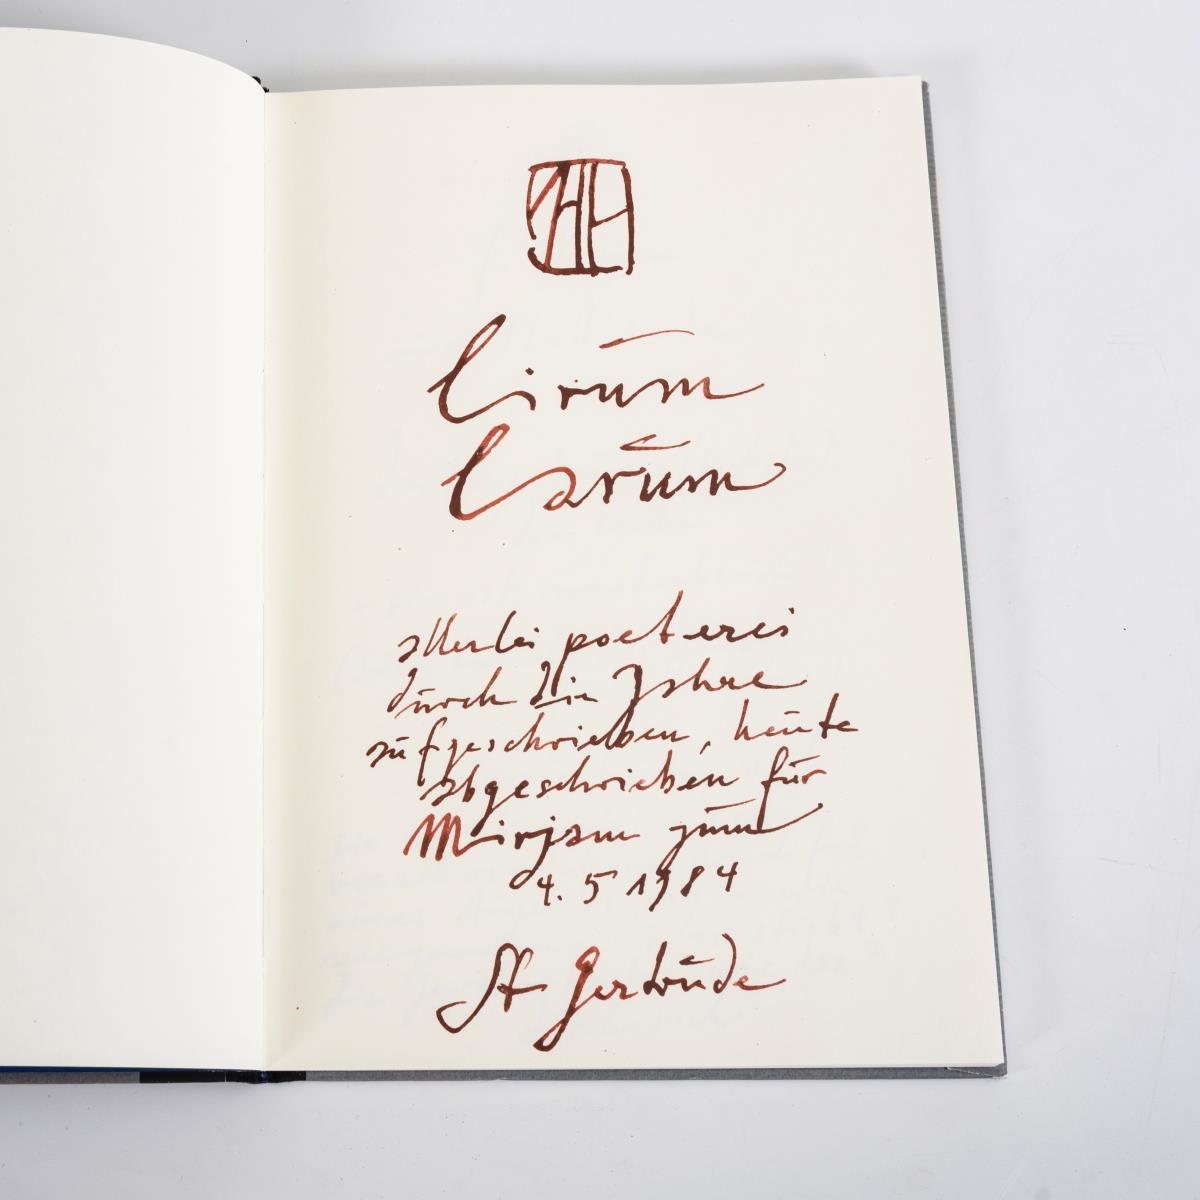 Cirum
Carum
allerlei poeterei
durch die Jahre
aufgeschrieben, heute
abgeschrieben für
Mirjam zum
4. 5 1984
St Gertrude